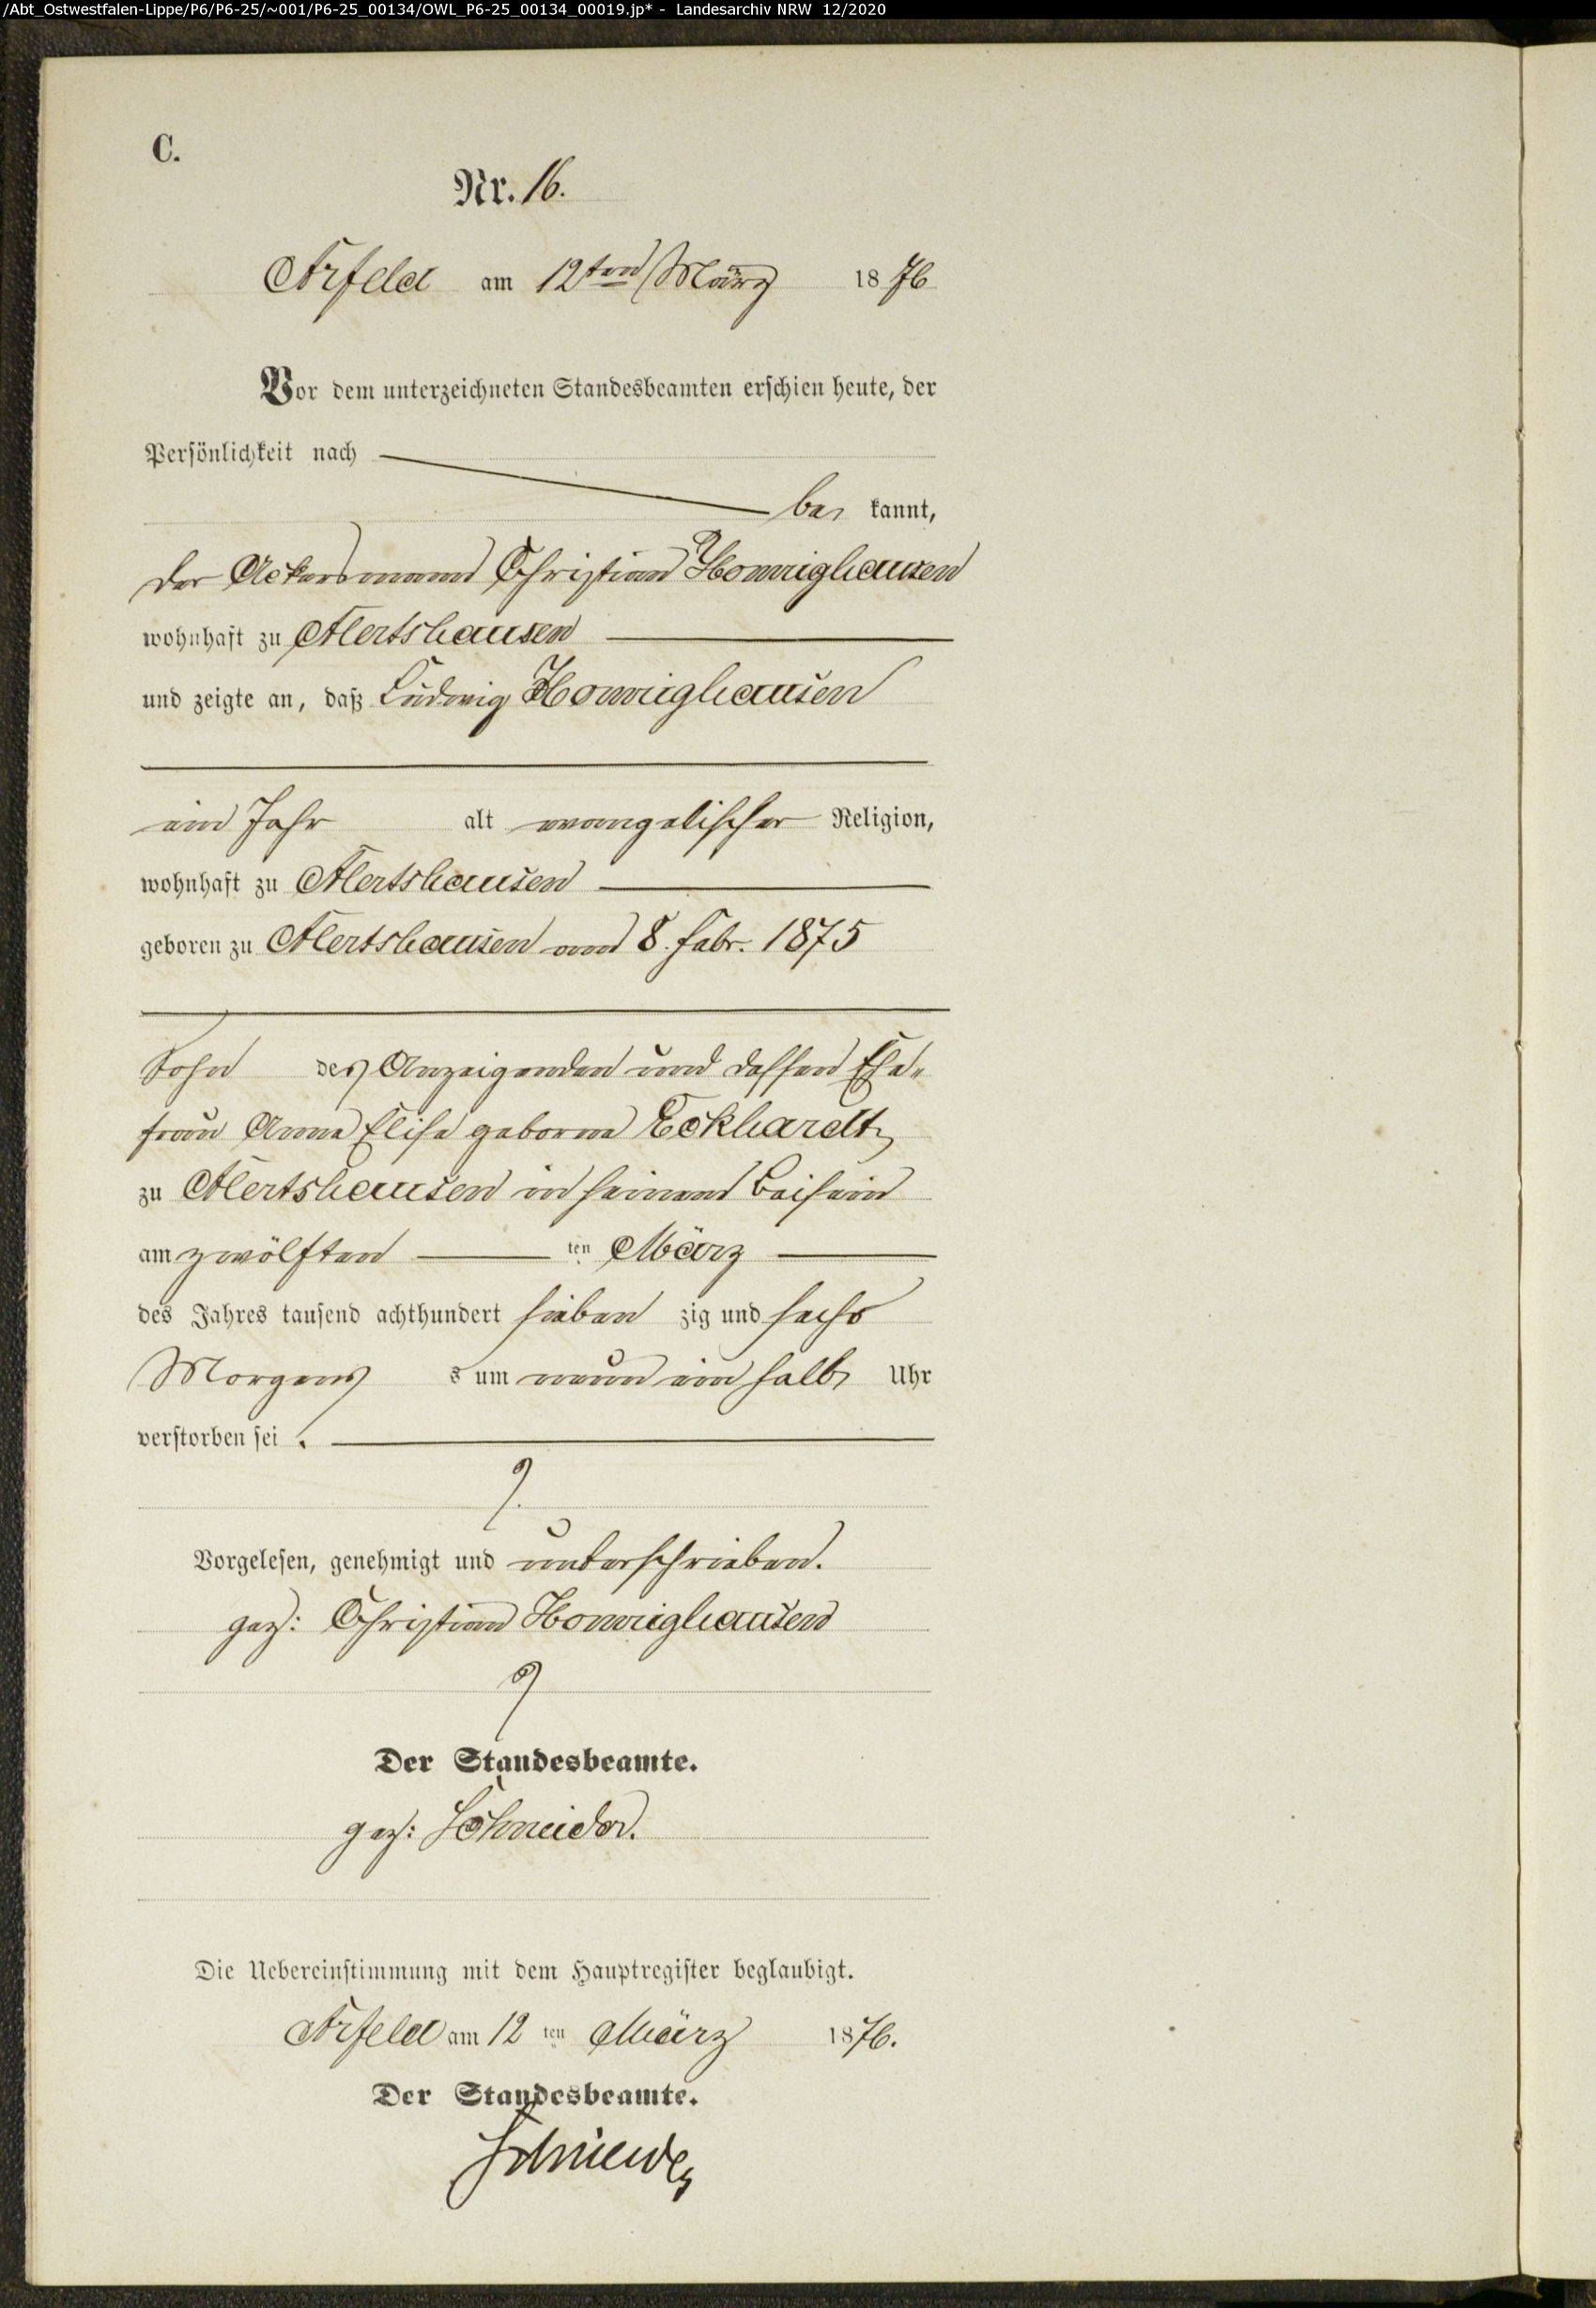 /Abt_Ostwestfalen-Lippe/P6/P6-25/~001/P6-25_00134/OWL_P6-25_00134_00019.jp* - Landesarchiv NRW 12/2020
C.
Nr. 16.
Arfeld am 12ten März 1876
Vor dem unterzeichneten Standesbeamten erschien heute, der
Persönlichkeit nach
be kannt,
der Ackersmann Christian Homrighausen
wohnhaft zu Alertshausen
und zeigte an, daß Ludwig Homrighausen
ein Jahr alt evangelischer Religion,
wohnhaft zu Alertshausen
geboren zu Alertshausen am 8. Febr. 1875
Sohn des Anzeigenden und dessen Ehe-
frau Anna Elise geborne Eckhardt,
zu Alertshausen in seinem Beisein
am zwölften ten März
des Jahres tausend achthundert sieben zig und sechs
Morgens s um neun ein halb Uhr
verstorben sei.
Vorgelesen, genehmigt und unterschrieben.
gez: Christian Homrighausen
Der Standesbeamte.
gez: Schneider.
Die Uebereinstimmung mit dem Hauptregister beglaubigt.
Arfeld am 12 ten März 1876.
Der Standesbeamte.
Schneider